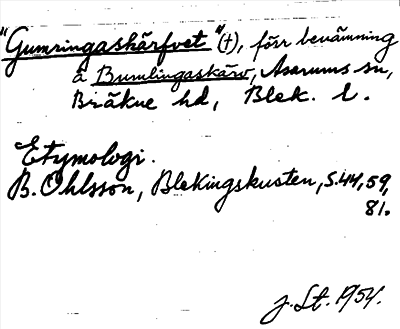 "Gumringaskärfvet"(†), förr benämning
å Bumlingaskärv, Asarums sn,
Bräkne hd, Blek. l.
Etymologi.
B. Ohlsson, Blekingskusten, s. 44, 59,
81.
J. Lt. 1954.